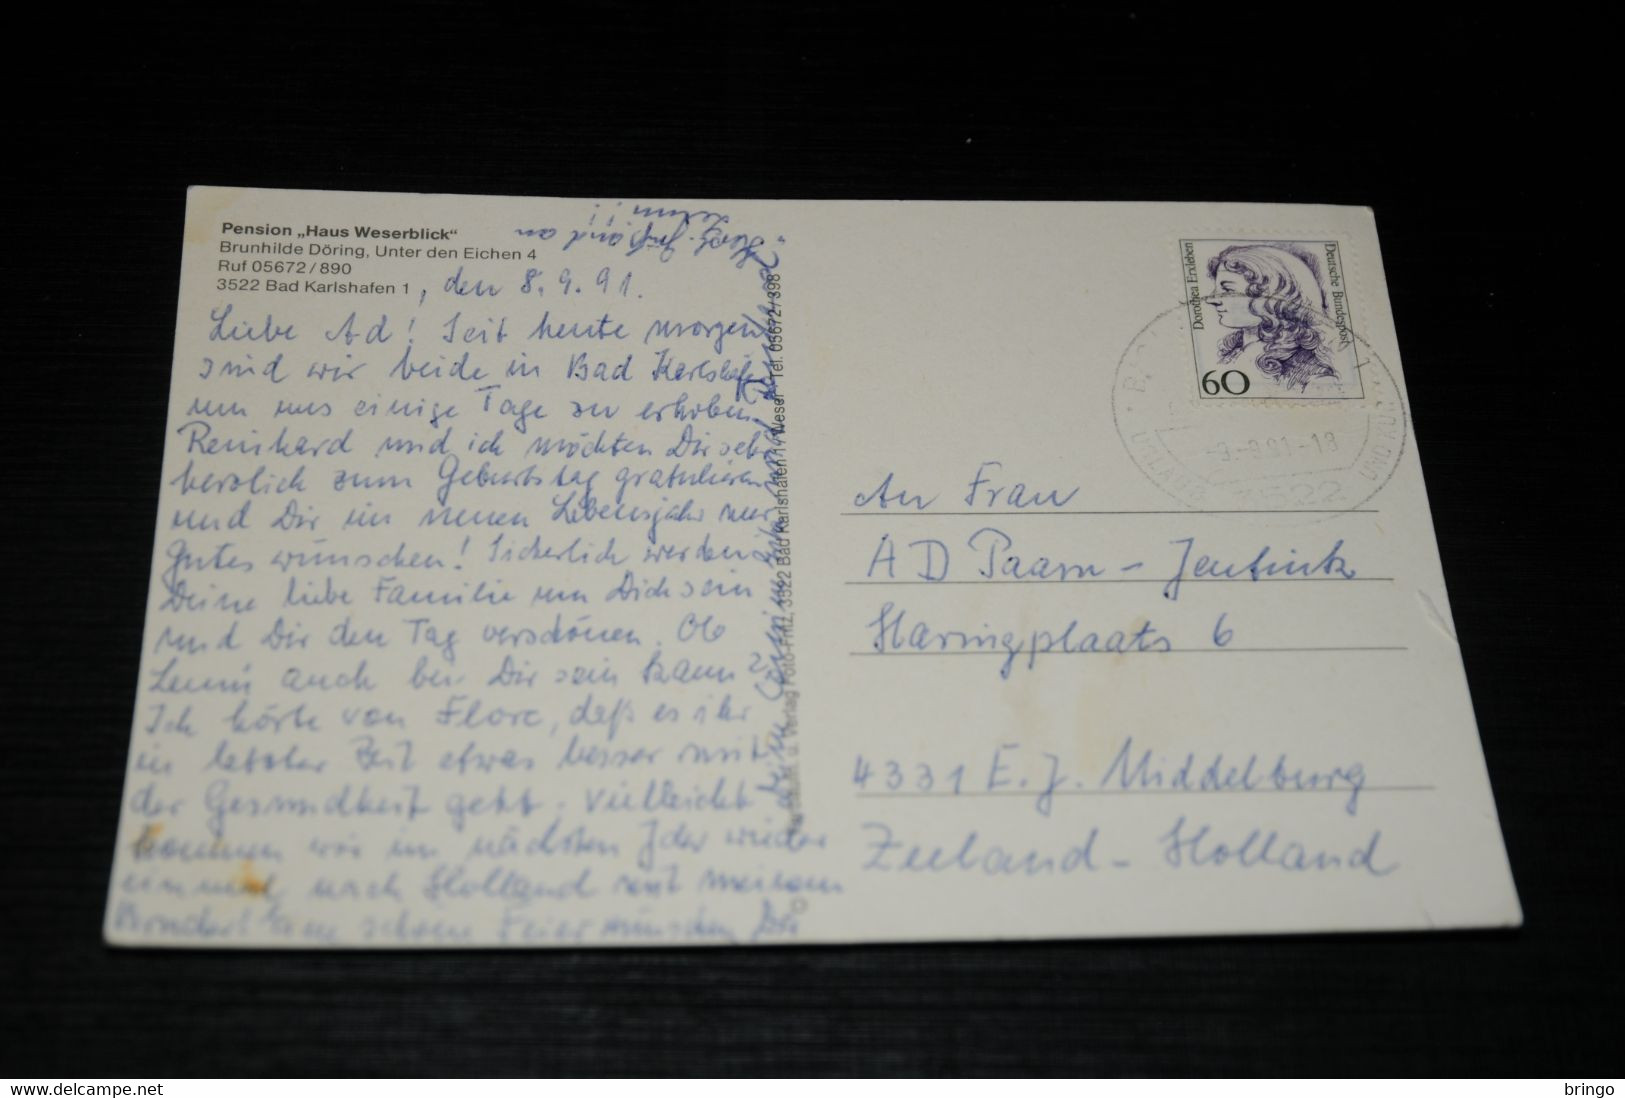 Pension „Haus Weserblick“
Brunhilde Döring, Unter den Eichen 4
Ruf 05672/890
3522 Bad Karlshafen 1, den 8.9.91.
Liebe Ad! Seit heute morgen
sind wir beide in Bad Karlshafen
um uns einige Tage zu erholen.
Reinhard und ich möchten Dir sehr
herzlich zum Geburtstag gratulieren
und Dir im neuen Lebensjahr nur
Gutes wünschen! Sicherlich werden
Deine liebe Familie um Dich sein
und Dir den Tag verschönen. Ob
auch bei Dir sein kann?
Ich hörte von Flore, daß es ihr
in letzter Zeit etwas besser mit
der Gesundheit geht. Vielleicht
kommen wir im nächsten Jahr wieder
einmal nach Holland mit meinem
Eine schöne Feier wünschen Dir
und Reinhard
Herzl. Gruß and an
3522 Bad Karlshafen 1 / Weser Tel. 05672/398
Dorothea Erxleben
Deutsche Bundespost
60
-9.-9.91-18
3522
An Frau
AD Paam - Jentink
Haringplaats 6
4331 E.J. Middelburg
Zeeland - Holland
bringo
delcampe.net